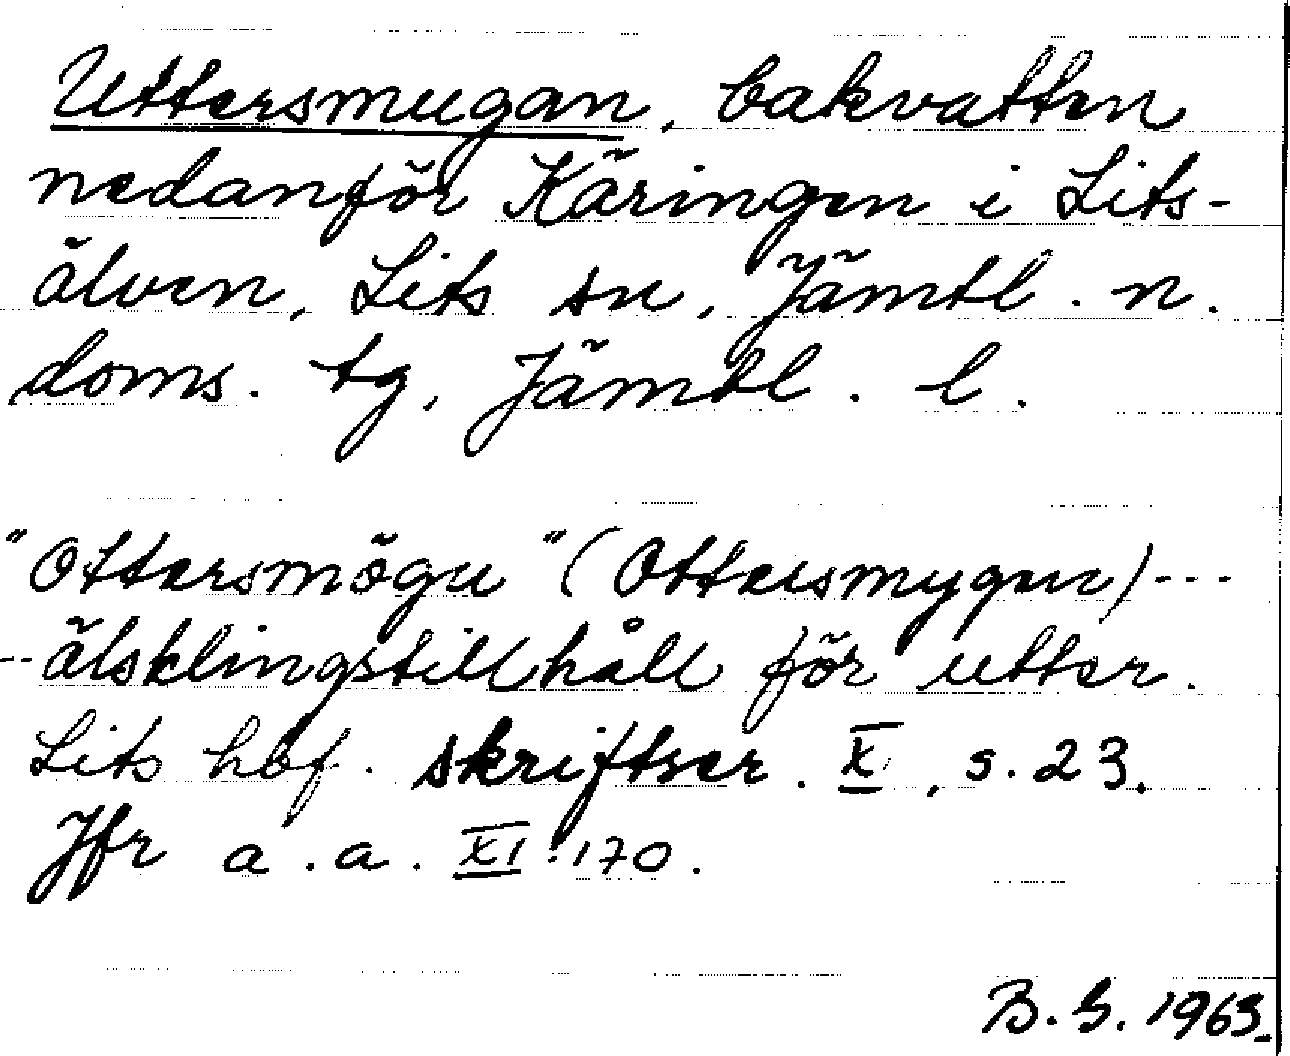 Uttersmugan, bakvatten
nedanför Käringen i Lits-
älven, Lits sn, Jämtl. n.
doms. tg, Jämtl. l.
"Ottersmögu" (Ottersmygun) ---
-- älsklingstillhåll för utter.
Lits hbf. skriftser. X, s. 23.
Jfr a.a. XI:170.
B.G. 1963.